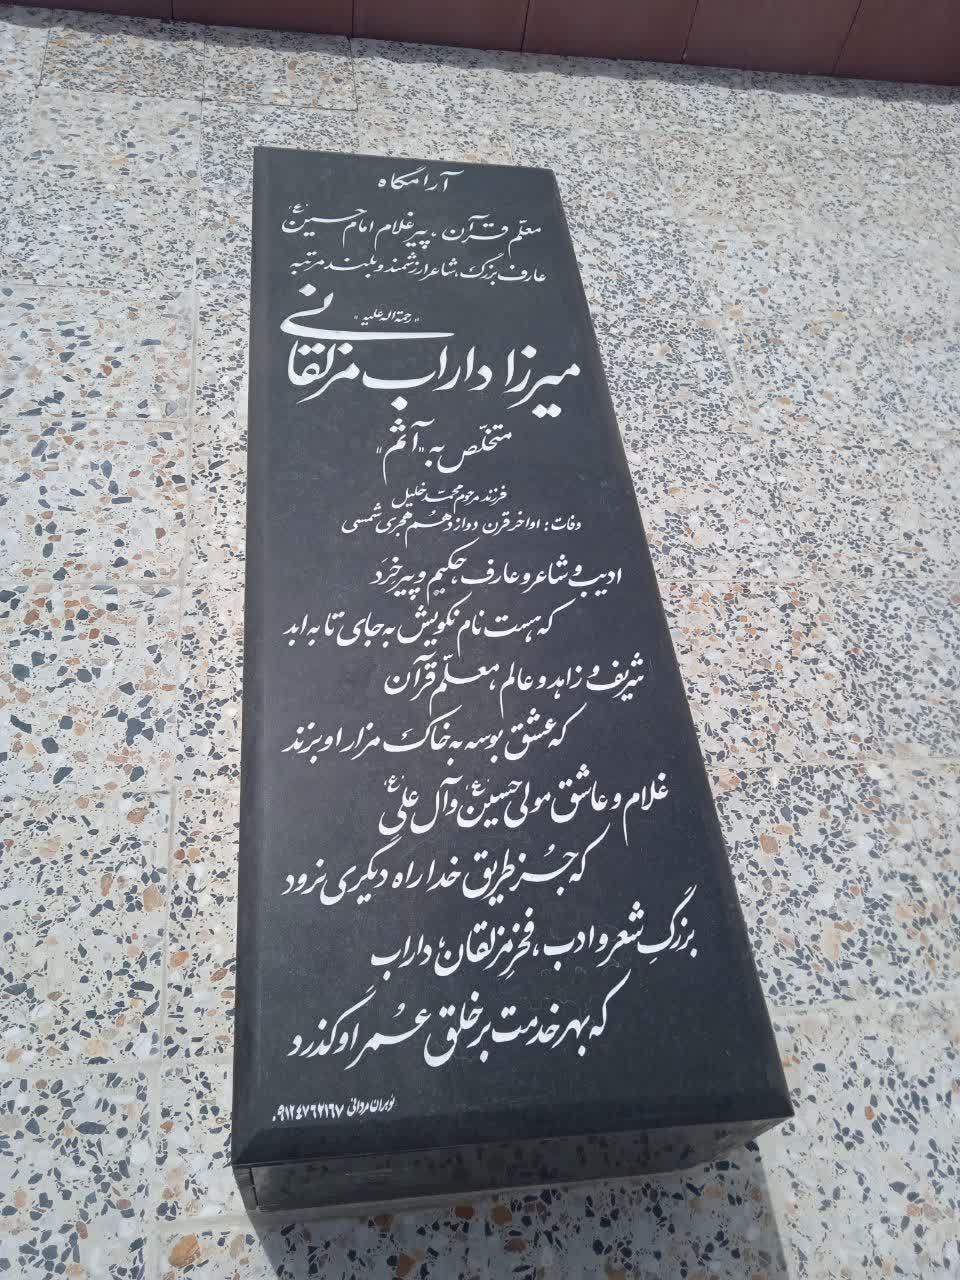 آرامگاه
معلّم قرآن، پیرغلام امام حسین (ع)
عارف بزرگ، شاعر ارزشمند و بلند مرتبه
"رحمة اله علیه"
میرزا داراب مزلقانی
متخلّص به "آثم"
فرزند مرحوم محمّد خلیل
وفات: اواخر قرن دوازدهم هجری شمسی
ادیب و شاعر و عارف، حکیم و پیر خِرَد
که هست نام نکویش به جای تا به ابد
شریف و زاهد و عالم، معلّم قرآن
که عشق بوسه به خاک مزار او بزند
غلام و عاشق مولی حسین (ع) و آل علی (ع)
که جُز طریق خدا راه دیگری نرود
بزرگِ شعر و ادب، فخرِ مزلقان، داراب
که بهر خدمت بر خلق عُمر او گذرد
نوبران مردانی ۰۹۱۲۴۷۶۲۱۶۷